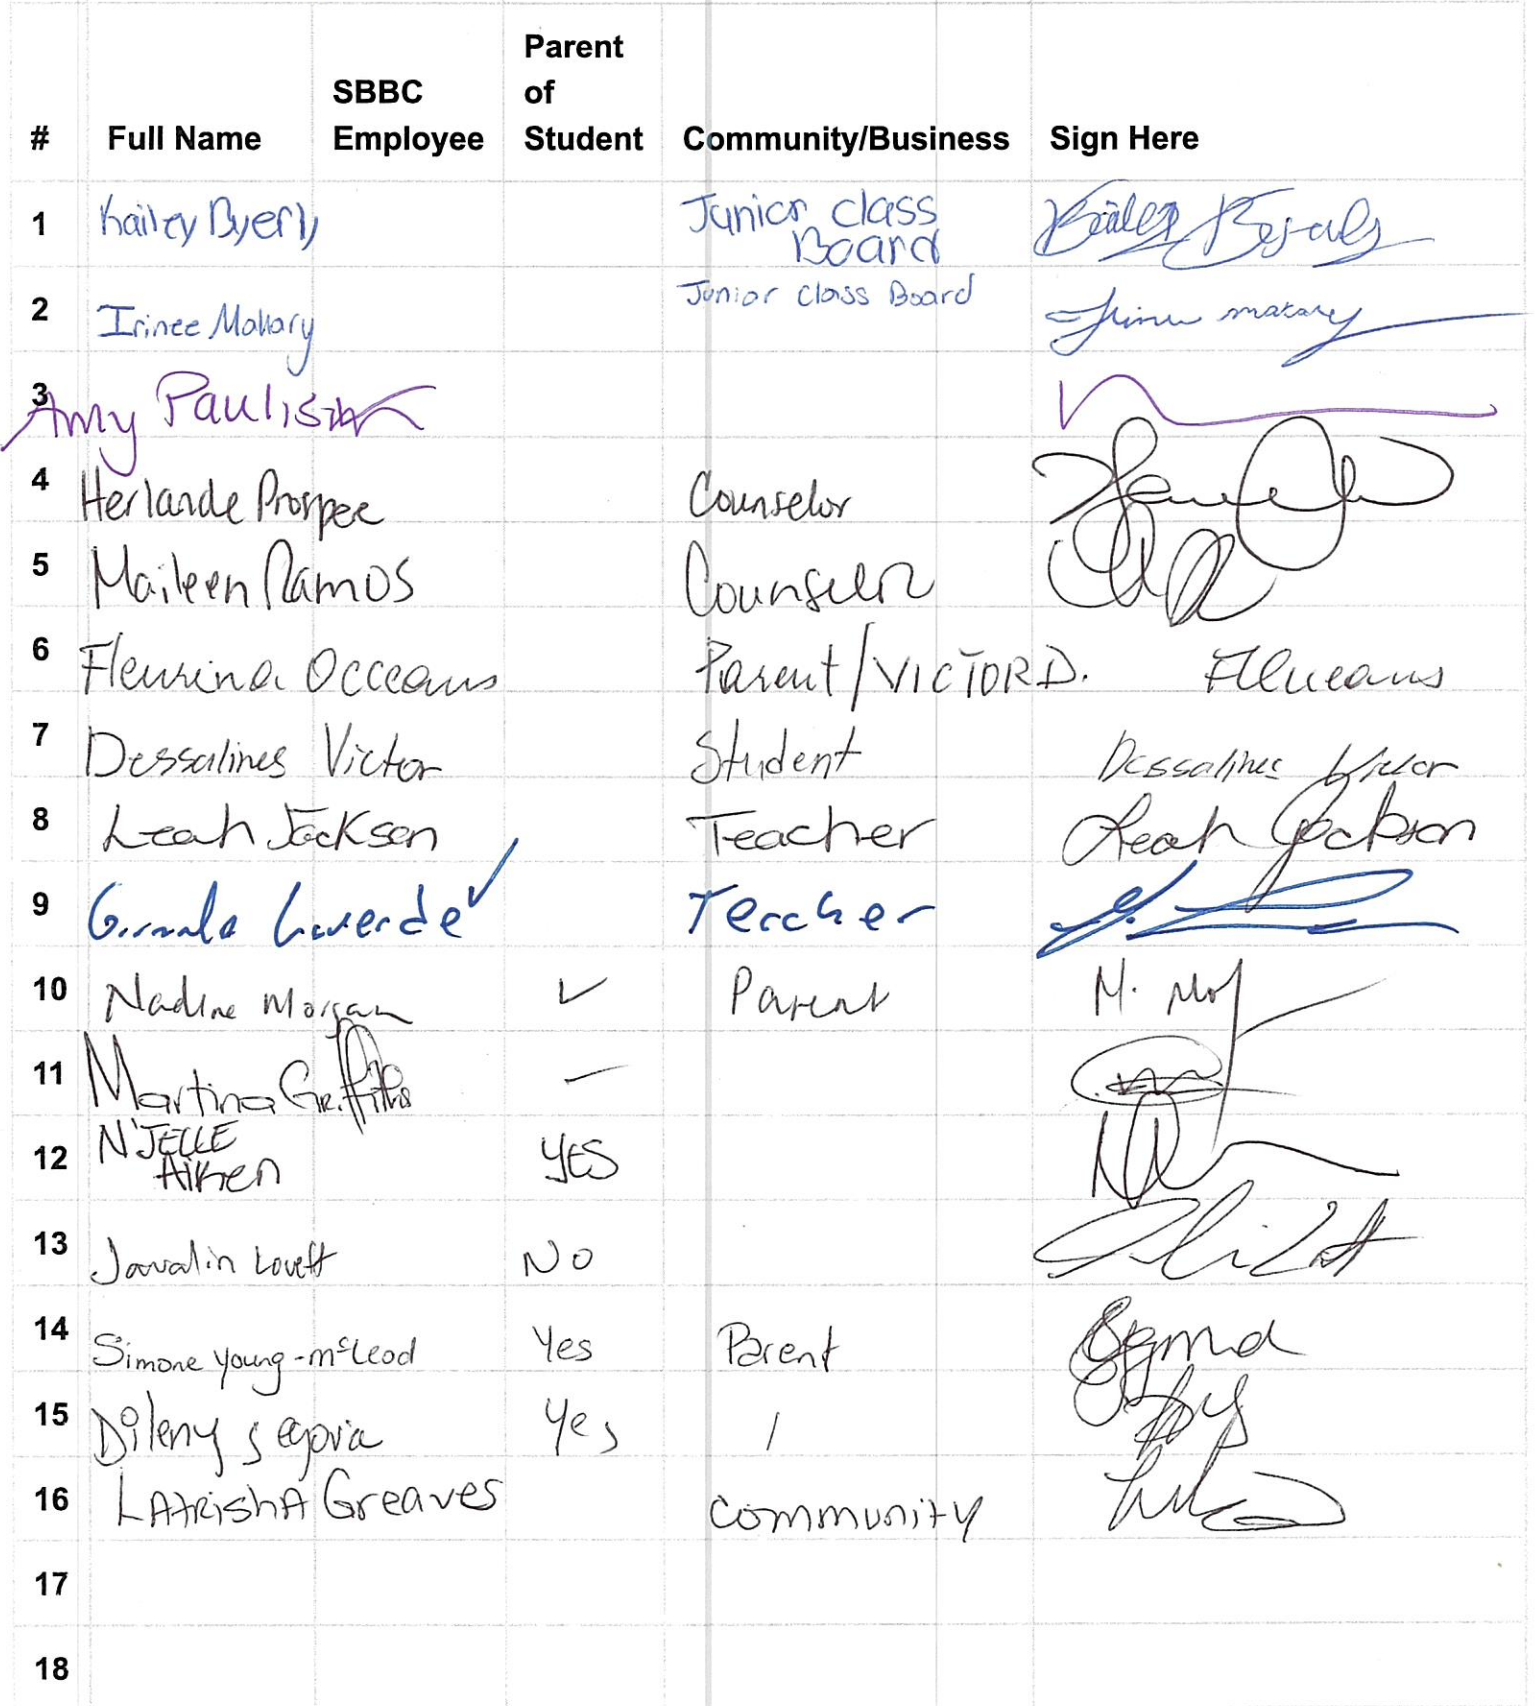 Parent
SBBC of
# Full Name Employee Student Community/Business Sign Here
1 Kailey Byerly Junior class
Board
2 Irinee Mallary Junior class Board
3 Amy Paulison
4 Herlande Prosper Counselor
5 Maileen Ramos Counselor
6 Fleurina Occeans Parent/VICTOR D.
7 Dessalines Victor Student Dessalines Victor
8 Leah Jackson Teacher Leah Jackson
9 Laverde ✓ Teacher
10 Nadine Morgan ✓ Parent
11 Martina Griffiths –
12 N'JELLE
Aiken YES
13 Javalin Lovett No
14 Simone Young-McLeod Yes Parent
15 Dileny Segovia Yes /
16 LAtRishA Greaves community
17
18